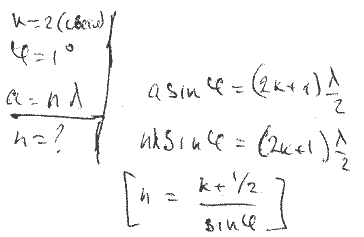 k = 2 (свет)
φ = 1°
a = n λ
n = ?
a sin φ = (2k+1) λ/2
nλ sin φ = (2k+1) λ/2
[n = (k + 1/2)/(sin φ)]